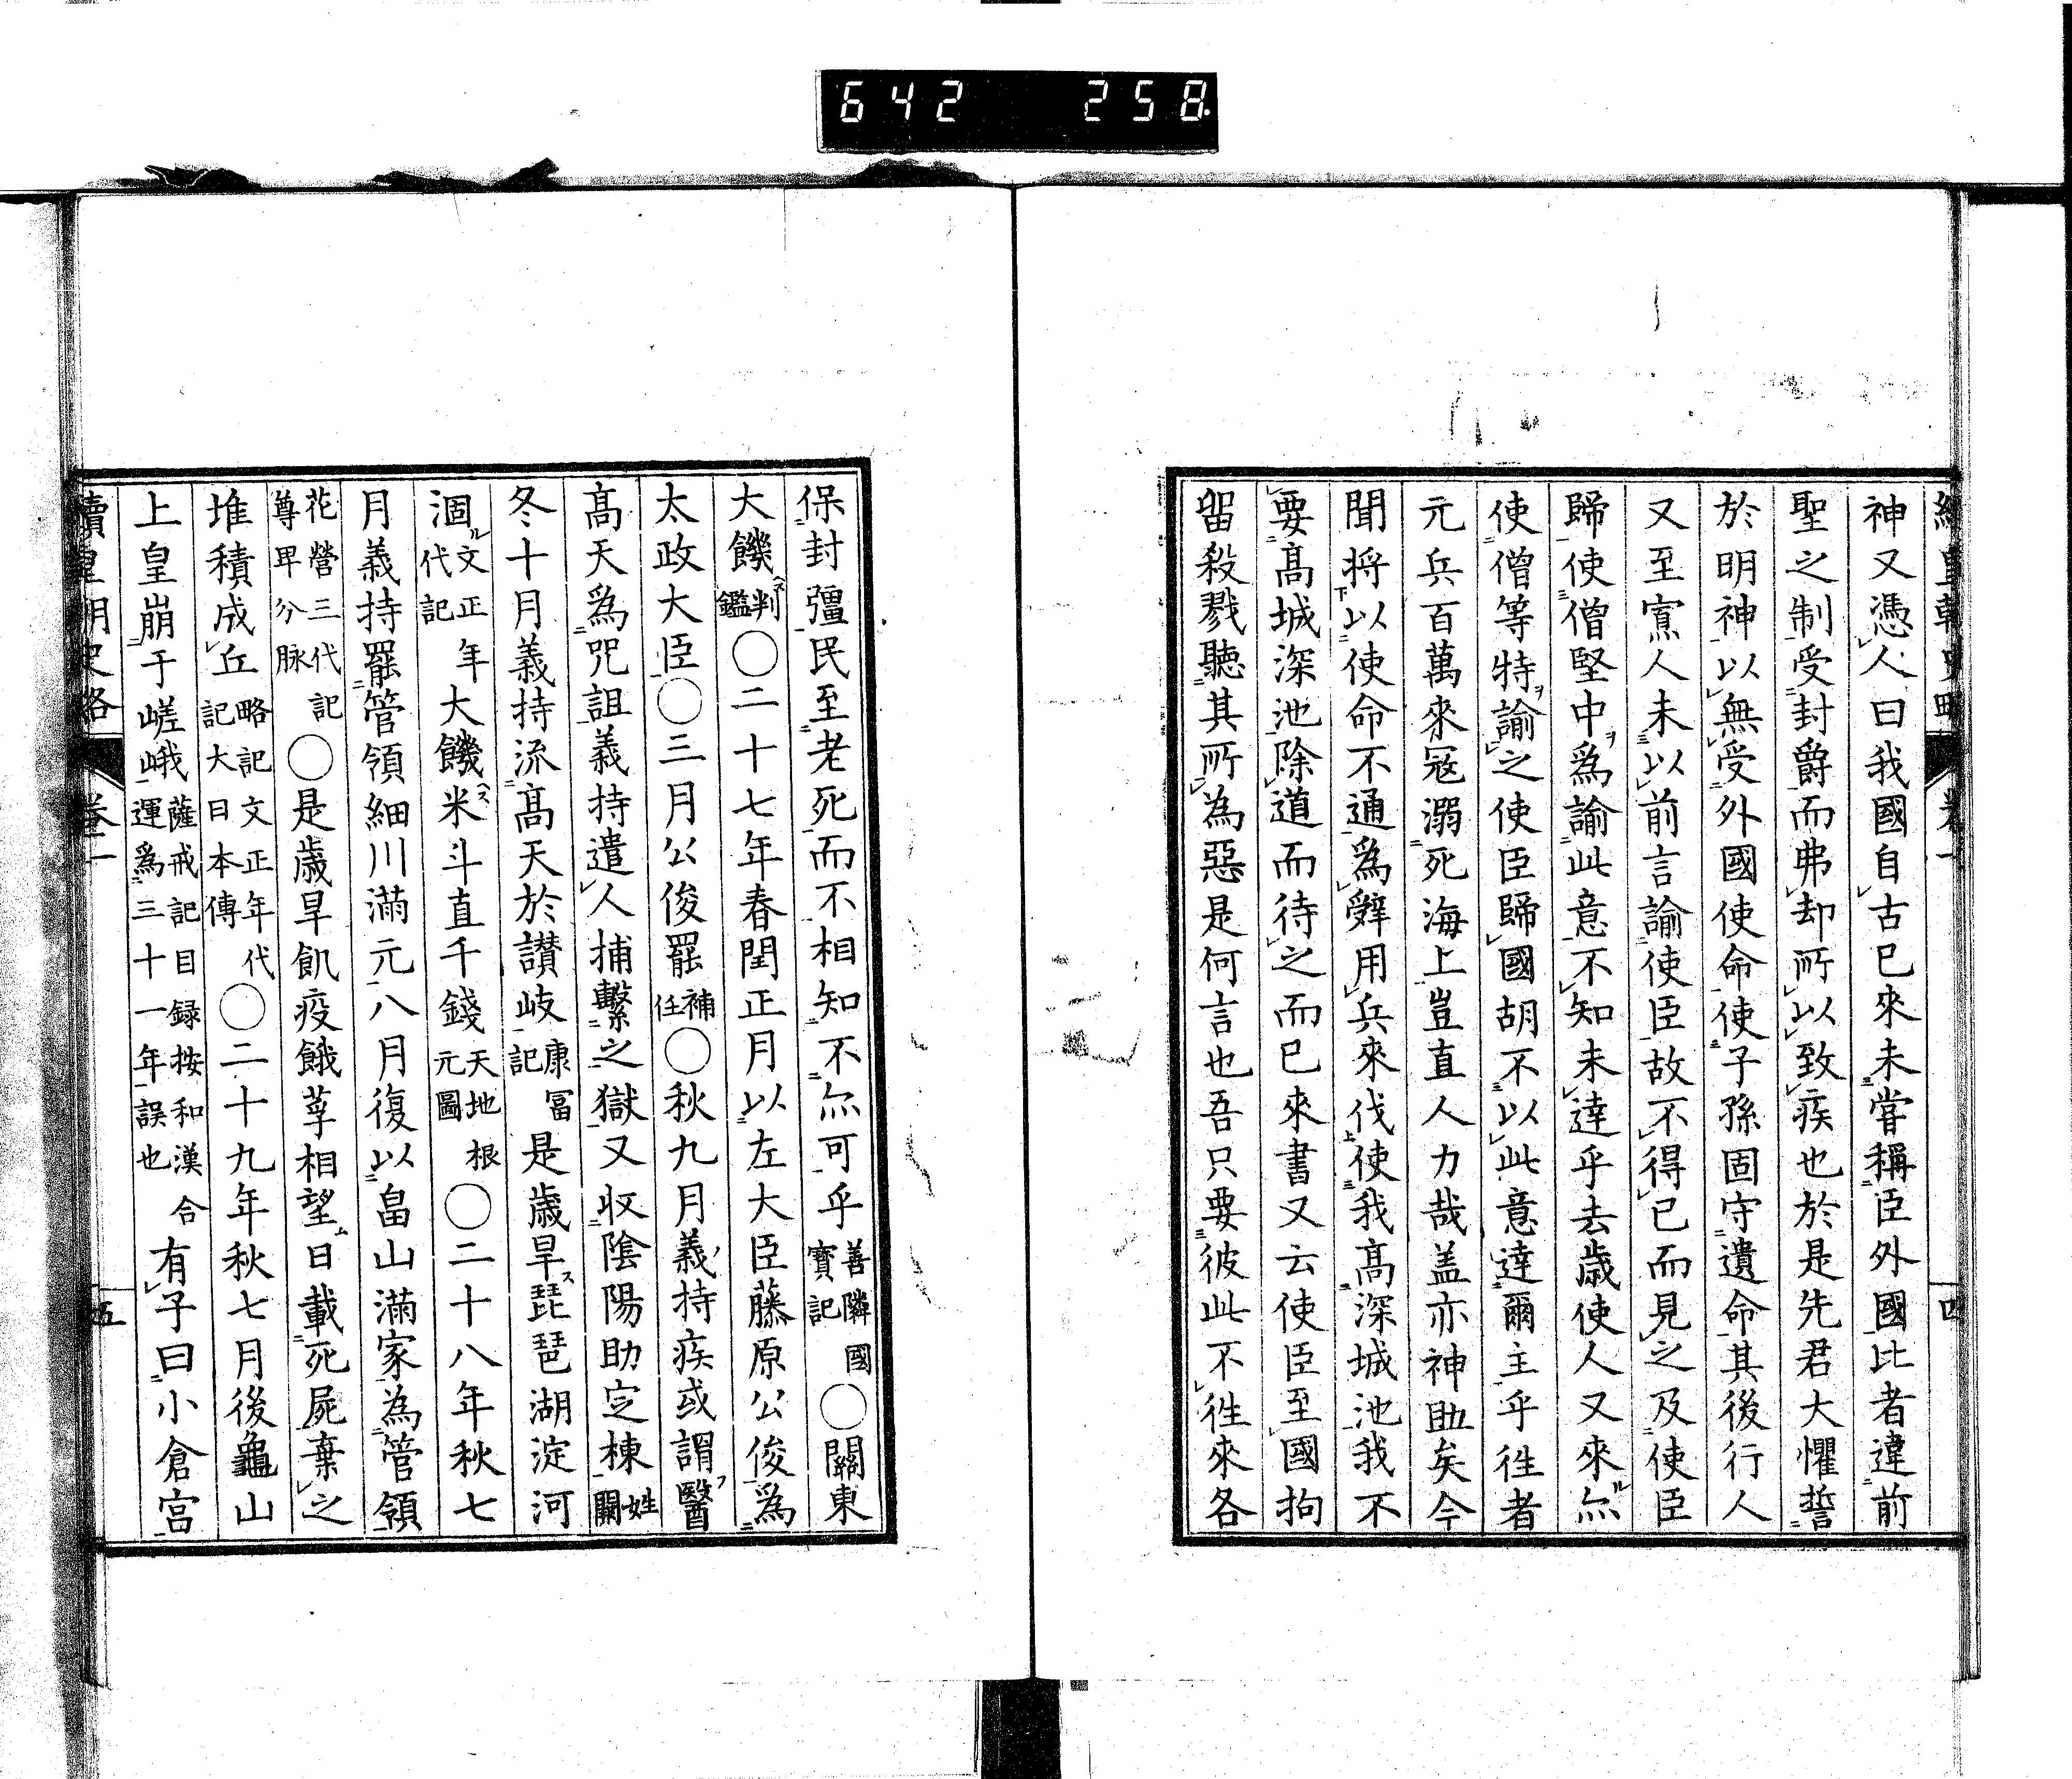 642 258
續皇朝史略 卷一 四
神又憑人曰我國自古已來未嘗稱臣外國比者違前
聖之制受封爵而弗却所以致疾也於是先君大懼誓
於明神以無受外國使命使子孫固守遺命其後行人
又至寡人未以前言諭使臣故不得已而見之及使臣
歸使僧堅中爲諭此意不知未達乎去歲使人又來尒
使僧等特諭之使臣歸國胡不以此意達爾主乎徃者
元兵百萬來冦溺死海上豈直人力哉盖亦神助矣今
聞將以使命不通爲辭用兵來伐使我高深城池我不
要高城深池除道而待之而已來書又云使臣至國拘
留殺戮聽其所為惡是何言也吾只要彼此不徃來各
保封彊民至老死而不相知不尒可乎善隣國寳記〇關東
大饑判鑑〇二十七年春閏正月以左大臣藤原公俊爲
太政大臣〇三月公俊罷補任〇秋九月義持疾或謂醫
高天爲咒詛義持遣人捕繫之獄又収陰陽助定棟姓闕
冬十月義持流高天於讃岐康冨記是歲旱琵琶湖淀河
涸文正年代記大饑米斗直千錢天地根元圖〇二十八年秋七
月義持罷管領細川滿元八月復以畠山滿家為管領
花營三代記尊卑分脉〇是歲旱飢疫餓莩相望日載死屍棄之
堆積成丘略記文正年代記大日本傳〇二十九年秋七月後龜山
上皇崩于嵯峨薩戒記目録按和漢合運爲三十一年誤也有子曰小倉宮
續皇朝史略 卷一 五